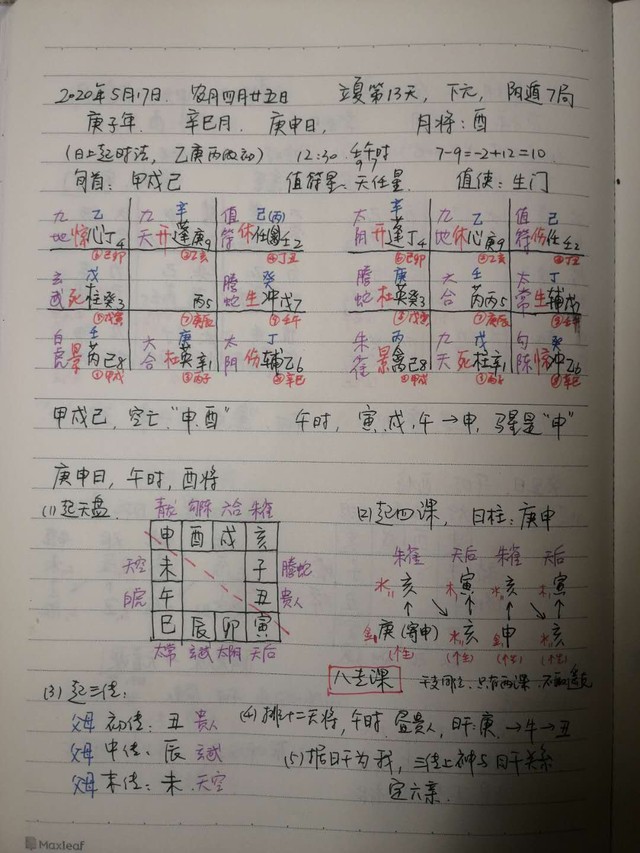 2020年5月17日 农历四月廿五日 立夏第13天，下元，阳遁7局
庚子年. 辛巳月. 庚申日， 月将：酉
(日上起时法，乙庚丙做初) 12:30 壬午时 7-9=-2+12=10
旬首：甲戌己 值符星：天任星. 值使：生门
九 乙 九 辛 值 己(丙) 太 辛 九 乙 值 己
地 惊心丁4 天 开蓬庚9 符 休任壬2 阴 开蓬丁4 地 休心庚9 符 伤任壬2
①己卯 ②乙亥 ④丁丑
玄 戊 螣 癸 螣 庚 六 壬 太 丁
武 死柱癸3 丙5 蛇 生冲戊7 蛇 杜英癸3 合 芮丙5 常 生辅戊7
⑤戊寅 ⑦庚辰 ⑨壬午
白 壬 六 庚 太 丁 朱 丙 九 戊 勾
虎 景芮己8 合 杜英辛1 阴 伤辅乙6 雀 景禽己8 天 死柱辛1 陈 惊冲乙6
①甲戌 ③丙子 ⑧辛巳
甲戌己，空亡："申.酉" 午时，寅.戌.午→申，马星是"申"
庚申日，午时，酉将
(1)起天盘. (2)起四课，日柱：庚申
青龙 勾陈 六合 朱雀
申 酉 戌 亥
天空 未 子 螣蛇
白虎 午 丑 贵人
巳 辰 卯 寅
太常 玄武 太阴 天后
朱雀 天后 朱雀 天后
水亥 木寅 水亥 木寅
金庚(寄申) 水亥 金申 水亥
(个生) (个生) (个生) (个生)
八专课 干支同位，只有两课
(3)起三传：
父母 初传：丑 贵人
父母 中传：辰 玄武
父母 末传：未 天空
(4)排十二天将，午时，昼贵人，日干：庚→牛→丑
(5)据日干为我，三传上神与日干关系
定六亲.
Maxleaf